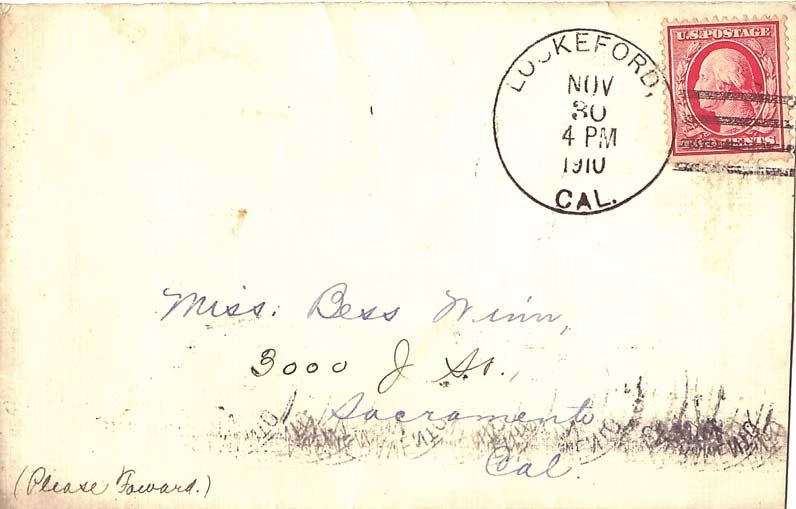 U.S. POSTAGE
LOCKEFORD,
NOV
30
4 PM
1910
CAL.
CENTS
Miss. Bess Winn,
3000 J St.,
Sacramento,
Cal.
(Please Foward.)